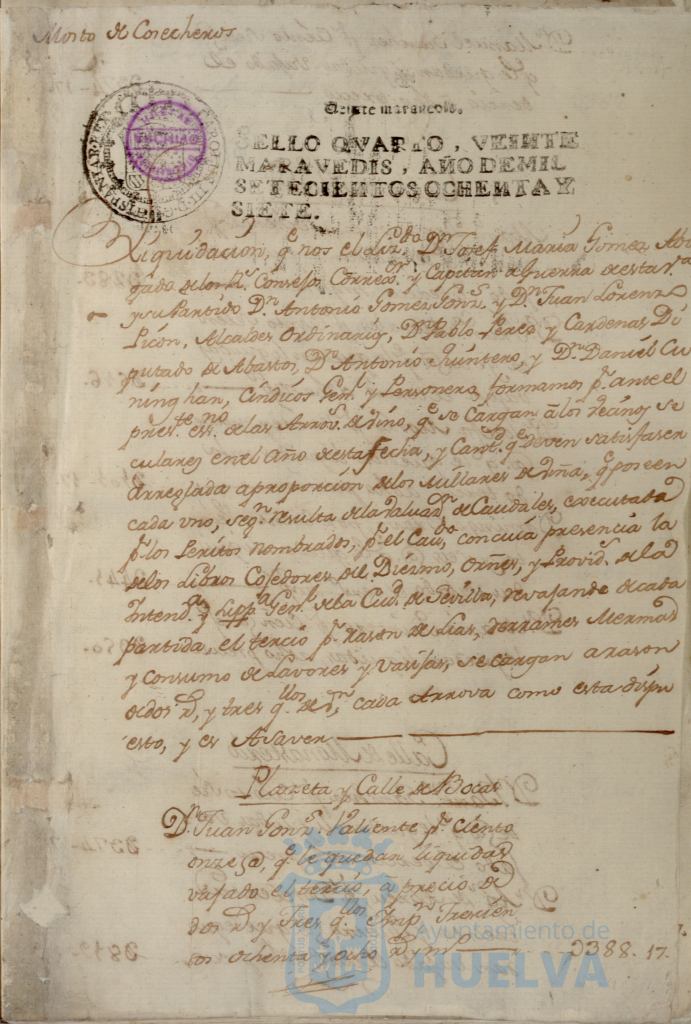 Mosto de Cosecheros
Veinte maravedis.
SELLO QVARTO, VEINTE
MARAVEDIS, AÑO DE MIL
SETECIENTOS OCHENTA Y
SIETE.
Liquidacion, q.e nos el Liz.do D.n Josef Maria Gomez Abo
gado de los R.s Consejos Correg.or y Capitan de Guerra de esta V.a
y su Partido D.n Antonio Gomez Gonz.s y D.n Juan Lorenzo
Picon, Alcaldes Ordinarios, D.n Pablo Perez y Cardenas Di
putado de Abastos, D.n Antonio Quintero, y D.n Daniel Cu
ninghan, Cindicos Gen.l y Personero, formamos p.r ante el
pres.te es.no de las Arrov.s de vino, q.e se Cargan á los vecinos se
culares en el Año de esta fecha, y Cant.d q.e deven satisfaser
arreglada a proporcion de los Millares de viña, q.e poseen
cada uno, seg.n resulta de la valuad.n de Caudales, executada
p.r los Peritos nombrados, p.r el Cau.do con cuia presencia la
de los Libros Cojedores del Diezmo, orñes, y Provid.s de la
Intend.a y Gen.l de la Ciu.d de Sevilla, revajando de cada
partida, el tercio p.r rason de Lias, derrames Mermas
y consumo de Lavores y Vasijas, se cargan a rason
de dos r.s y tres q.llos de v.n cada Arrova como esta dispu
esto, y es Asaver
Plazeta y Calle de Bocas
D.n Juan Gonz.s Valiente p.r Ciento
onze @, q.e le quedan liquidas
vajado el tercio, a precio de
dos r.s y Tres q.llos Imp.n Trescien
tos ochenta y ocho r.s y m.o 388. 17.
Ayuntamiento de
HUELVA